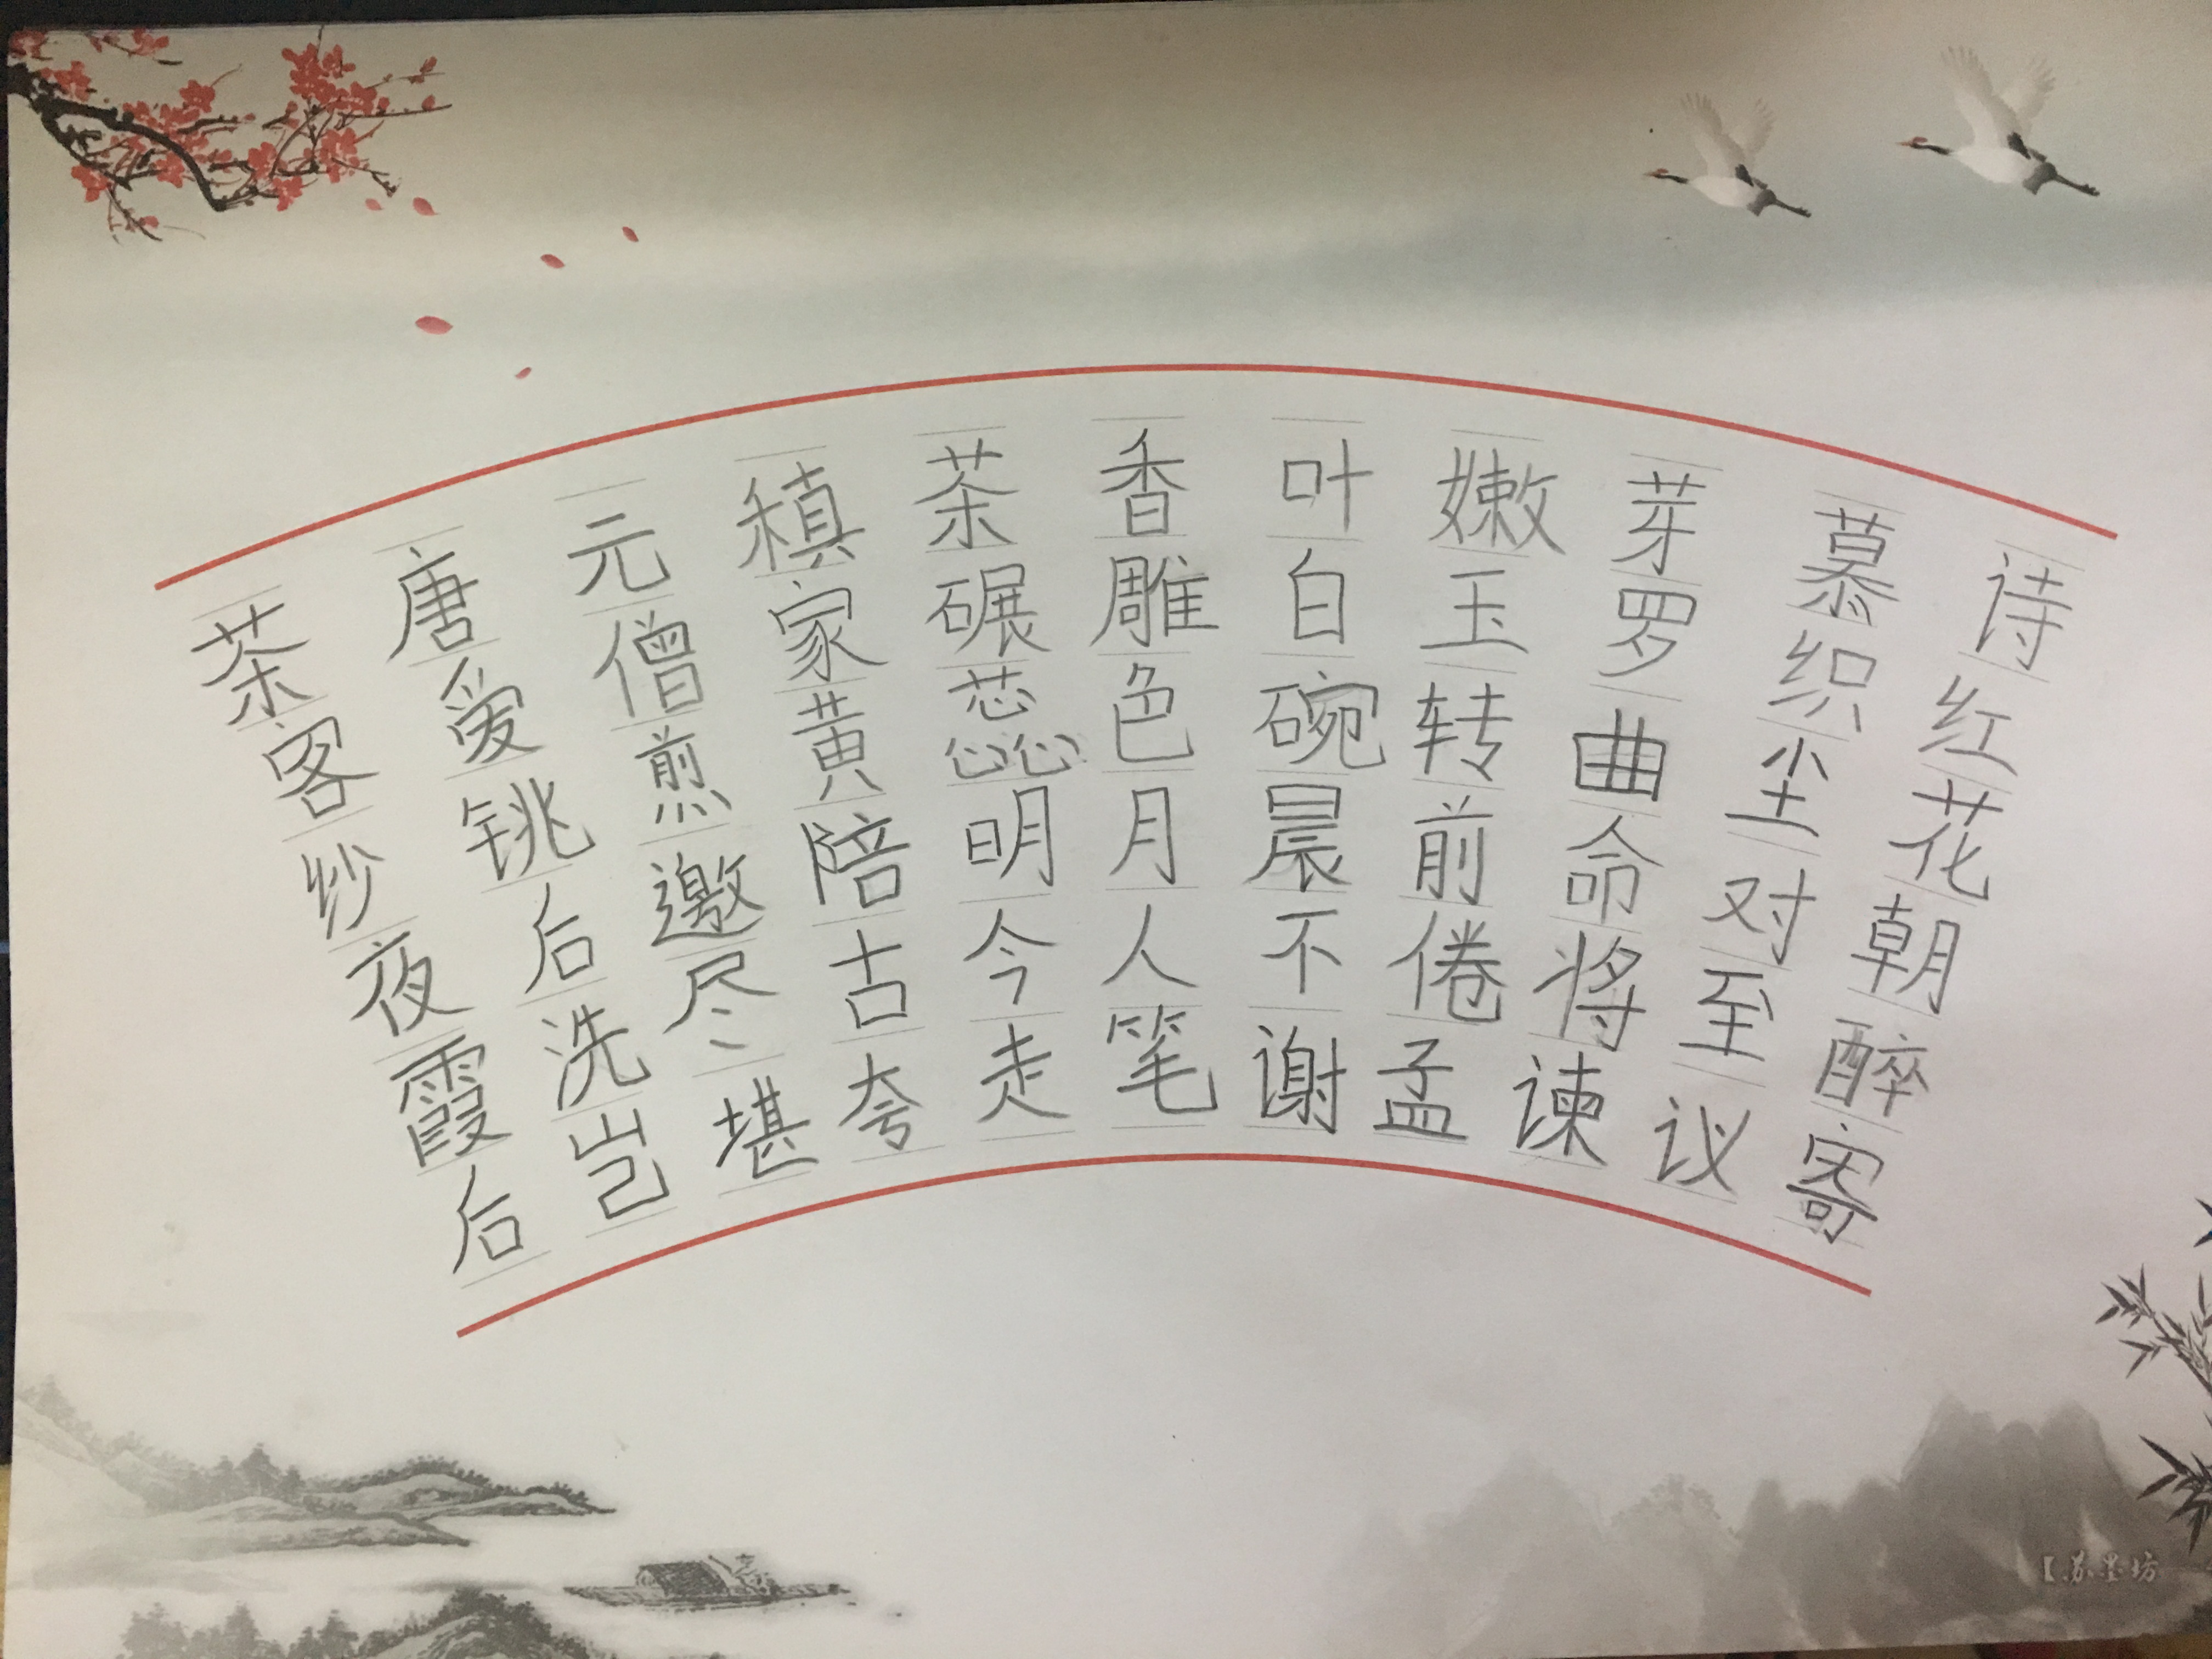 茶唐元稹茶香叶嫩芽慕诗
客爱僧家碾雕白玉罗织红
纱铫煎黄蕊色碗转曲尘花
夜后邀陪明月晨前命对朝
霞洗尽古今人不倦将至醉
后岂堪夸走笔谢孟谏议寄
【苏墨坊